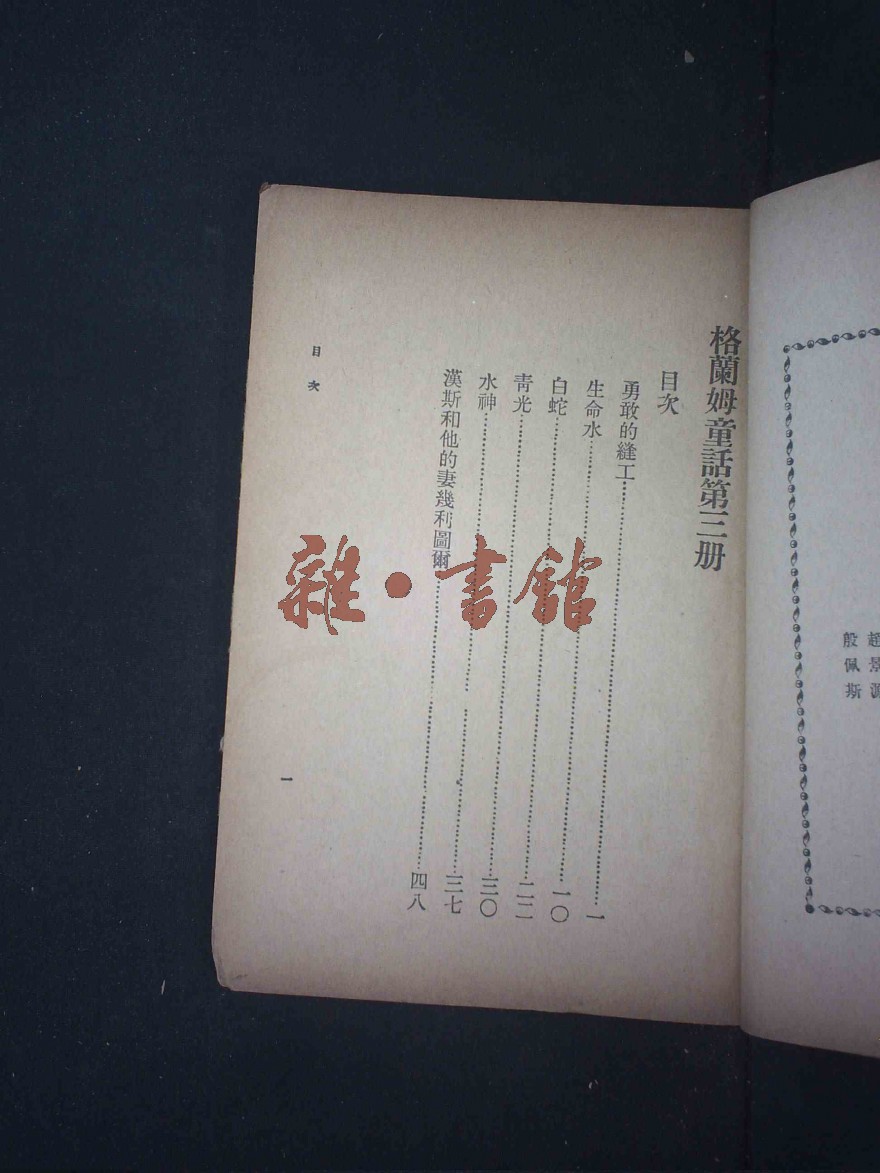 趙景源
殷佩斯
格蘭姆童話第三册
目次
勇敢的縫工……一
生命水……一〇
白蛇……二二
青光……三〇
水神……三七
漢斯和他的妻幾利圖爾……四八
目次
一
雜·書館